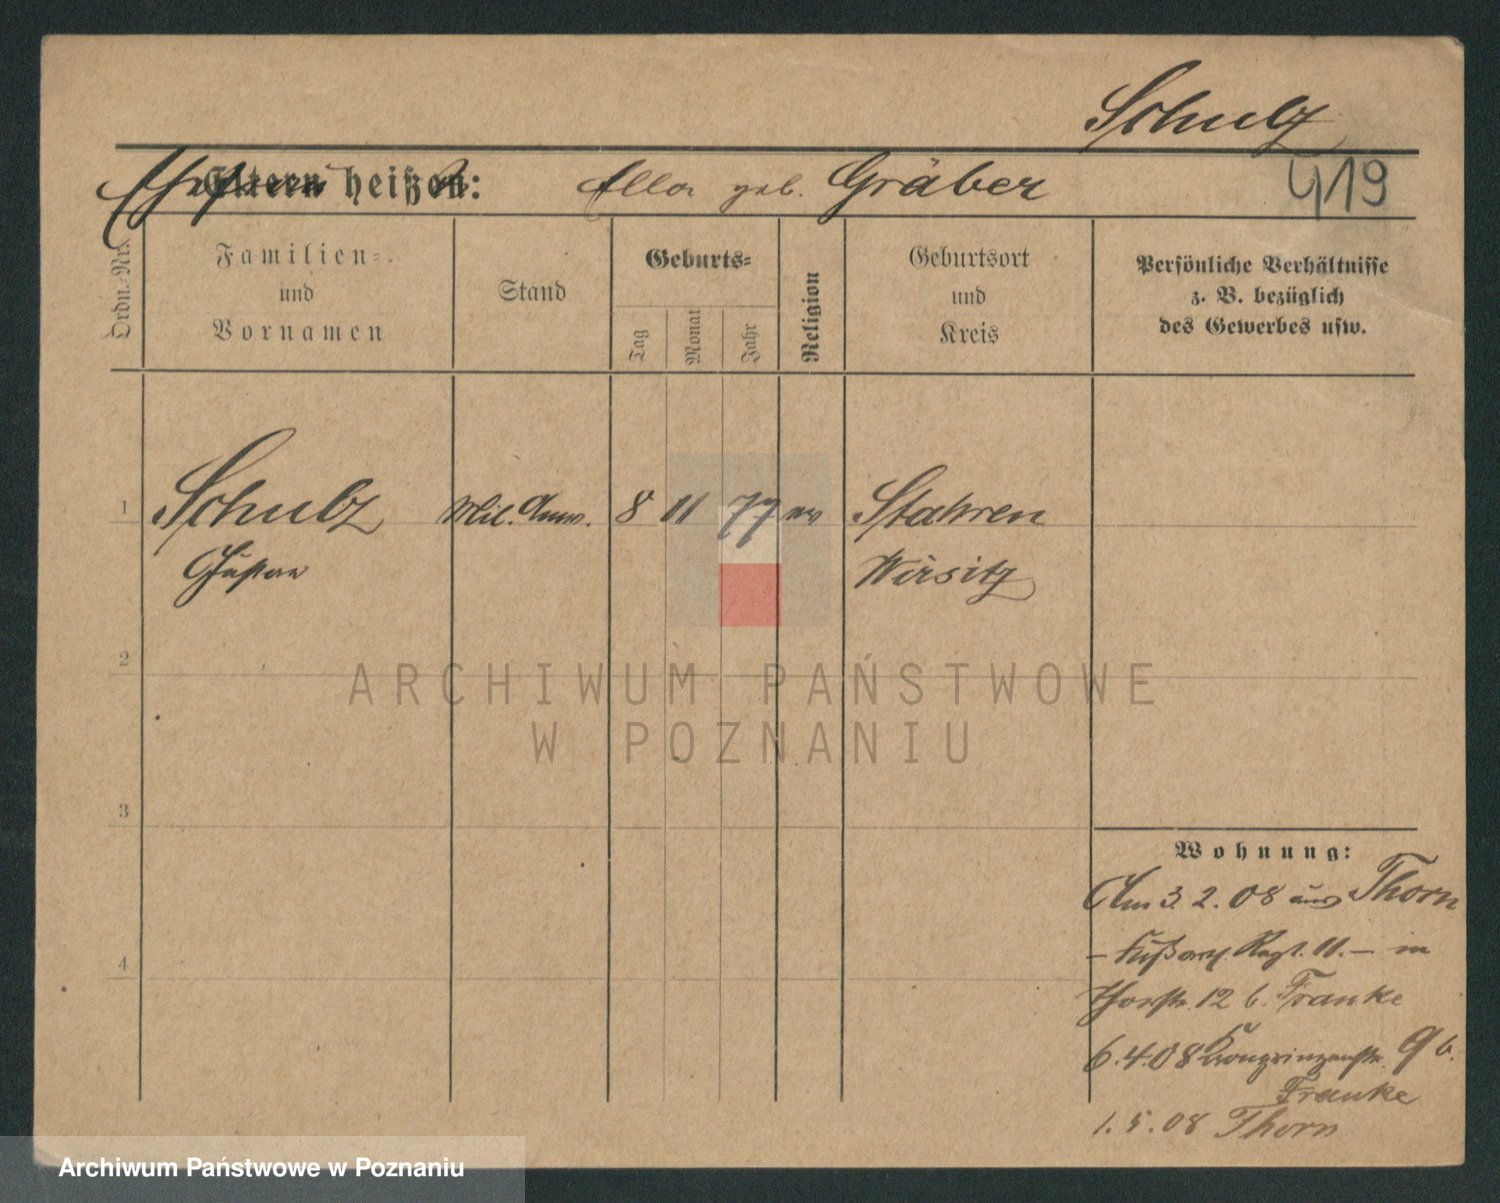 Schulz
Ehefrau heißt: Ella geb. Gräber
419
Ordn.-Nr.
Familien-
und
Vornamen
Stand
Geburts-
Tag
Monat
Jahr
Religion
Geburtsort
und
Kreis
Persönliche Verhältnisse
z. B. bezüglich
des Gewerbes usw.
1 Schulz Mil. Anw. 8 11 77 ev Stahren
Gustav Wirsitz
2
3
4
ARCHIWUM PAŃSTWOWE
W POZNANIU
Wohnung:
Am 3. 2. 08 aus Thorn
– Fußart. Regt. 11. – in
12 b. Franke
6.4.08 Kronprinzenstr. 9 b.
Franke
1. 5. 08 Thorn
Archiwum Państwowe w Poznaniu